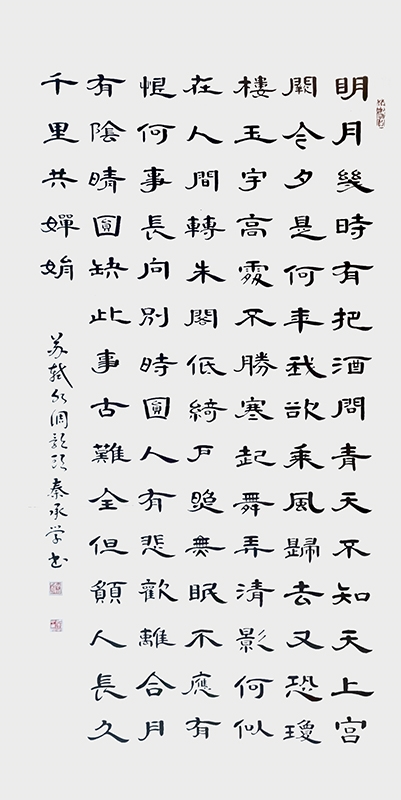 明月幾時有把酒問青天不知天上宮
闕今夕是何年我欲乘風歸去又恐瓊
樓玉宇高處不勝寒起舞弄清影何似
在人間轉朱閣低綺戶照無眠不應有
恨何事長向別時圓人有悲歡離合月
有陰晴圓缺此事古難全但願人長久
千里共嬋娟
苏軾水調歌頭秦承学书